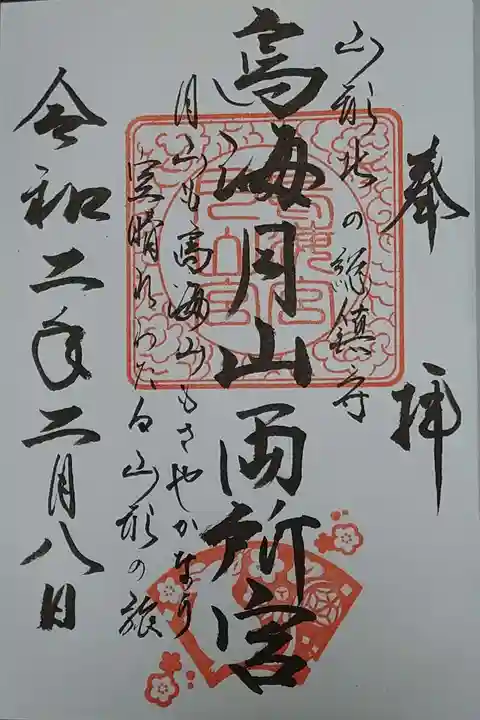 奉拝
山形北の総鎮守
鳥海月山両所宮
月山も鳥海山もさやかなり
空晴れわたる山形の旅
令和二年二月八日